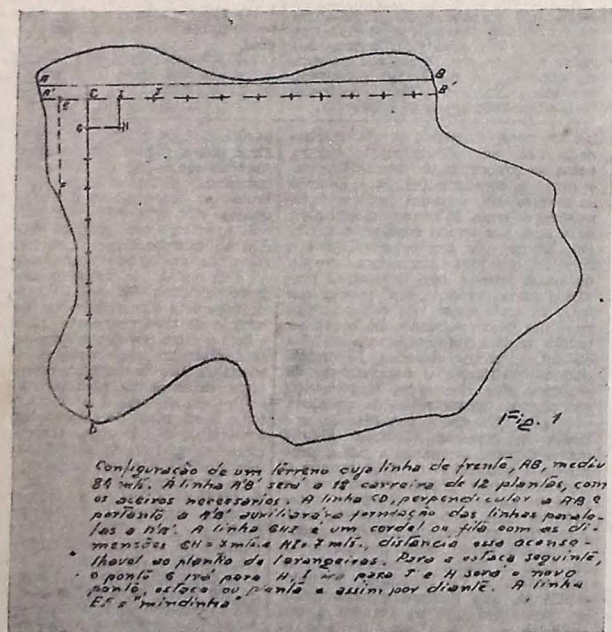 A B
A' E C I J B'
G H
F
D
Fig. 1
Configuração de um terreno cuja linha de frente, AB, mediu
84 mts. A linha A'B' será a 1ª carreira de 12 plantas, com
os aceiros necessarios. A linha CD, perpendicular a AB e
portanto a A'B' auxiliará a formação das linhas parale-
las a A'B'. A linha GHI é um cordel ou fita com as di-
mensões GH = 7 mts. e HI = 7 mts., distancia essa aconse-
lhavel ao plantio de laranjeiras. Para a estaca seguinte,
o ponto G irá para H, I irá para J e H será o novo
ponto, estaca ou planta e assim por diante. A linha
EF é "mindinha"